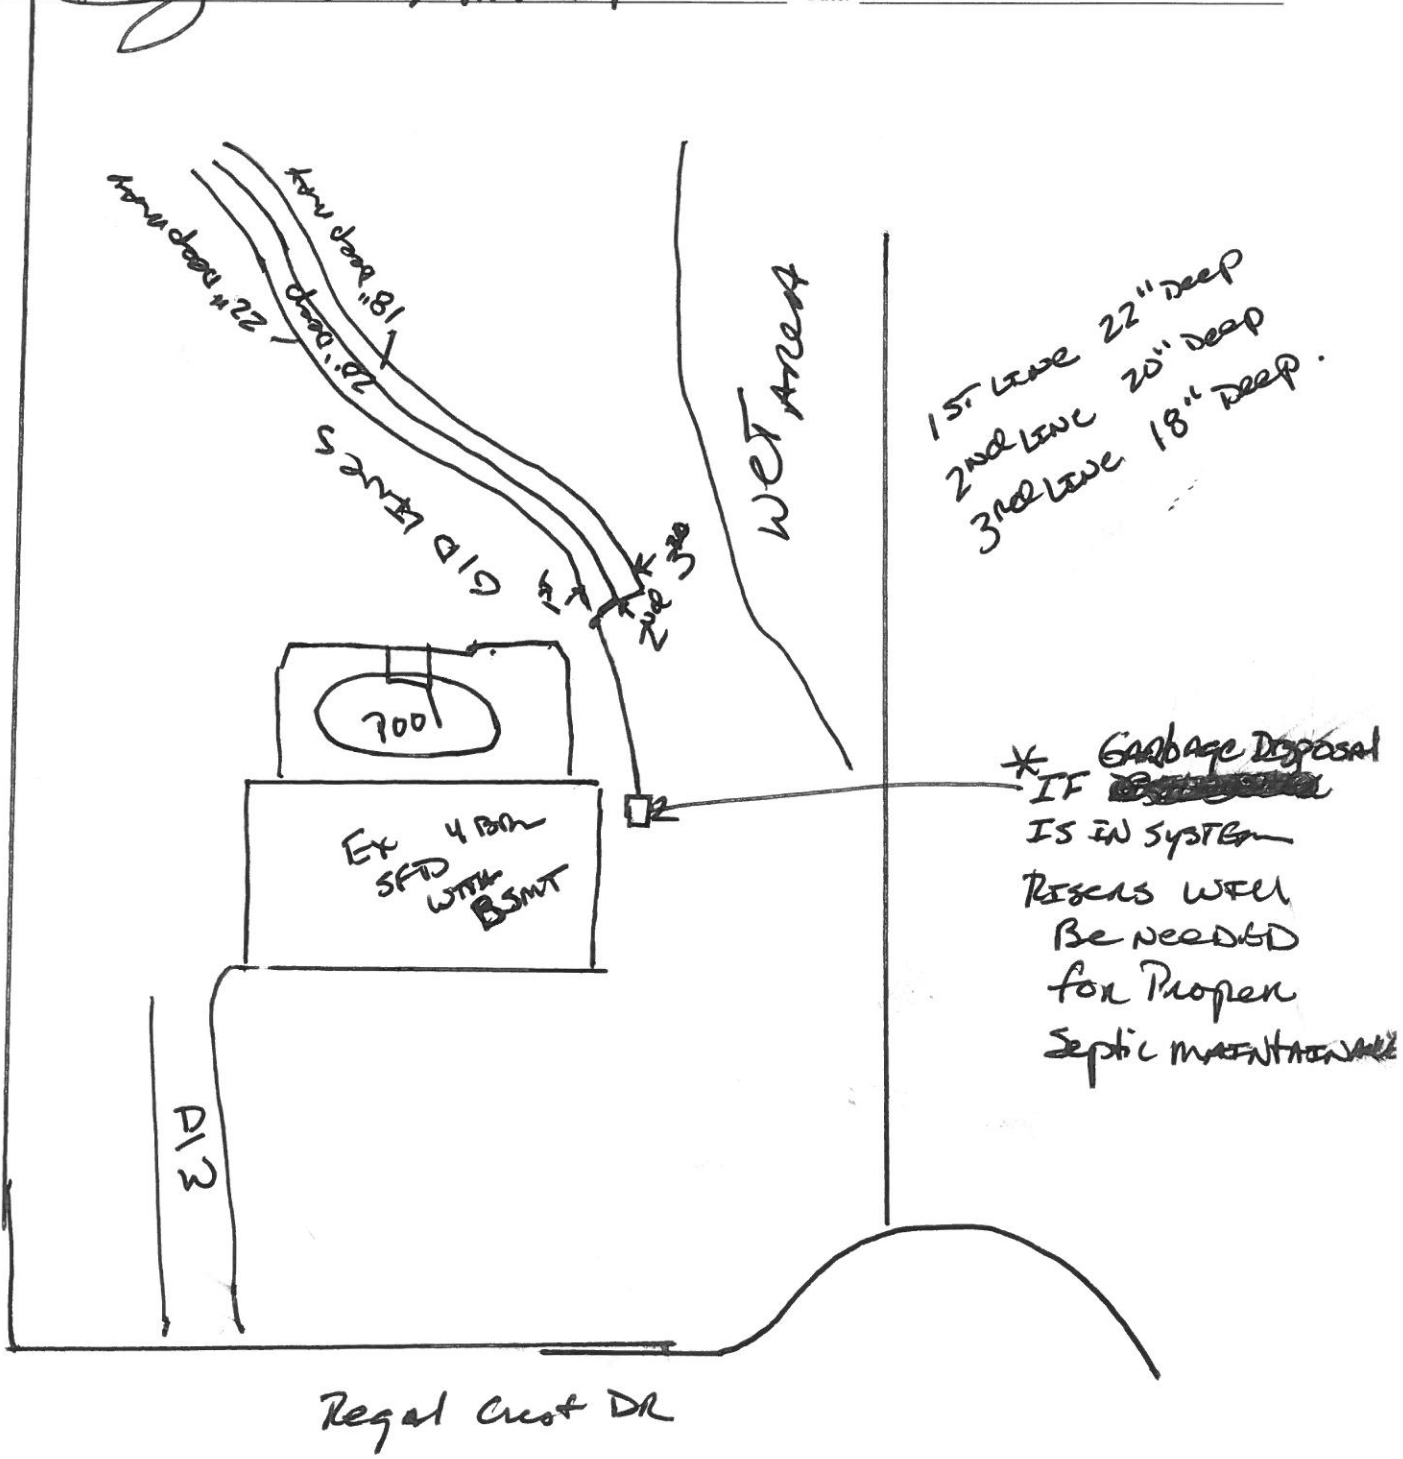 18" Deep MAX
20" Deep
22" Deep MAX
G/D LINES
1ST
2nd
3RD
WET AREA
1ST LINE 22" Deep
2nd LINE 20" Deep
3rd LINE 18" Deep.
POOL
Ex 4 BRM
SFD WITH
BSMT
2
* GARBAGE DISPOSAL
IF
IS IN SYSTEM
RISERS WILL
Be NEEDED
for Proper
Septic MAINTAINANCE
D/W
Regal Crest DR